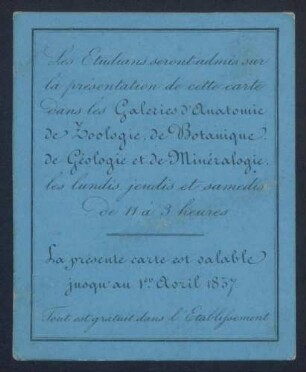 Les Etudians seront admis sur
la présentation de cette carte
dans les Galeries d'Anatomie
de Zoologie, de Botanique,
de Géologie et de Minéralogie,
les lundis jeudis et samedis
de 11 à 3 heures
La présente carte est valable
jusqu'au 1er Avril 1837.
Tout est gratuit dans l'Etablissement